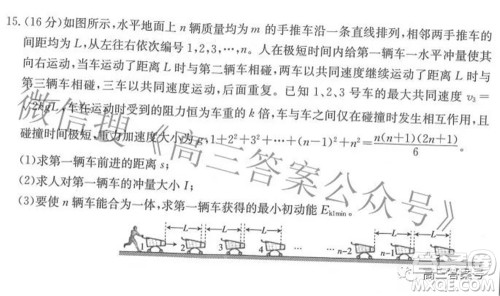 15.(16分)如图所示,水平地面上n辆质量均为m的手推车沿一条直线排列,相邻两手推车的
间距均为L,从左往右依次编号1,2,3,…,n。人在极短时间内给第一辆车一水平冲量使其
向右运动,当车运动了距离L时与第二辆车相碰,两车以共同速度继续运动了距离L时与
第三辆车相碰,三车以共同速度运动,后面重复。已知1,2,3号车的最大共同速度v₃=
车在运动时受到的阻力恒为车重的k倍,车与车之间仅在碰撞时发生相互作用,且
碰撞时间极短,重力加速度大小为g,1+2²+3²+…+(n-1)²+n²=n(n+1)(2n+1)/6。
(1)求第一辆车前进的距离s;
(2)求人对第一辆车的冲量大小I;
(3)要使n辆车能合为一体,求第一辆车获得的最小初动能Eₖ₁ₘᵢₙ。
L L L L L
1 2 3 4 … … n-2 n-1 n
微信搜《高三答案公众号》
高三答案号